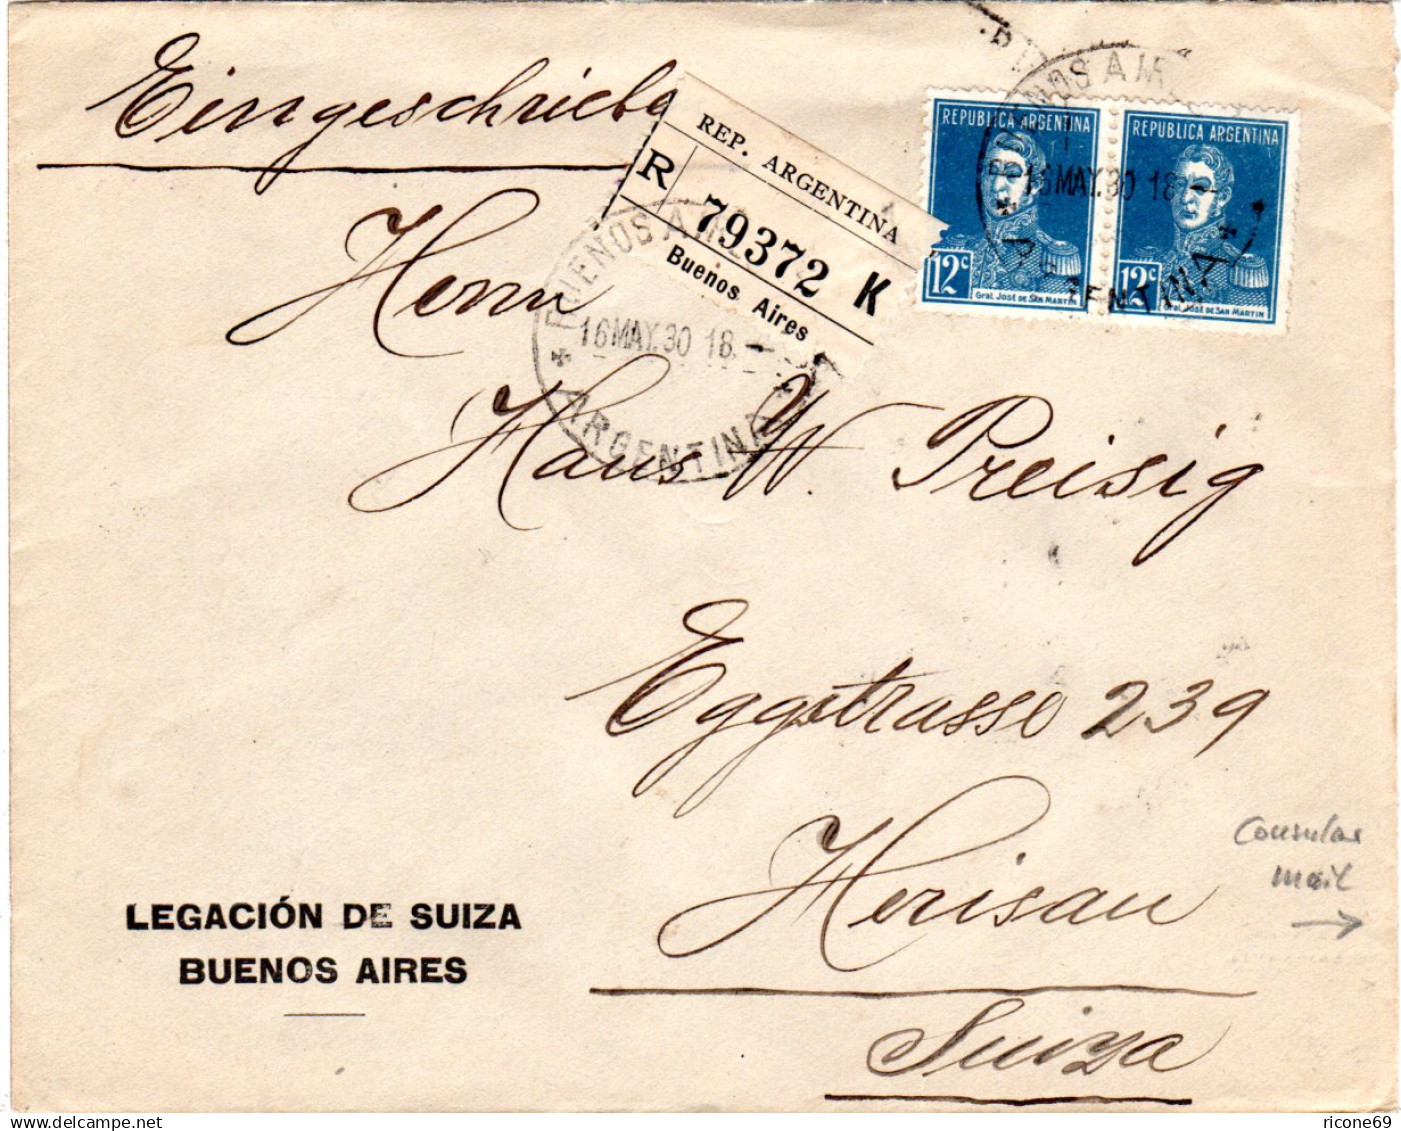 Eingeschriebe
REP. ARGENTINA
R
79372 K
Buenos Aires
BUENOS AIRES
16 MAY.30 18
ARGENTINA
REPUBLICA ARGENTINA
12c
Gral. José de San Martin
REPUBLICA ARGENTINA
12c
Gral. José de San Martin
BUENOS AIRES
16 MAY.30 18
ARGENTINA
Herrn
Hans W. Preisig
Eggstrasse 239
Herisau
Suiza
Consular
mail
LEGACIÓN DE SUIZA
BUENOS AIRES
ricone69